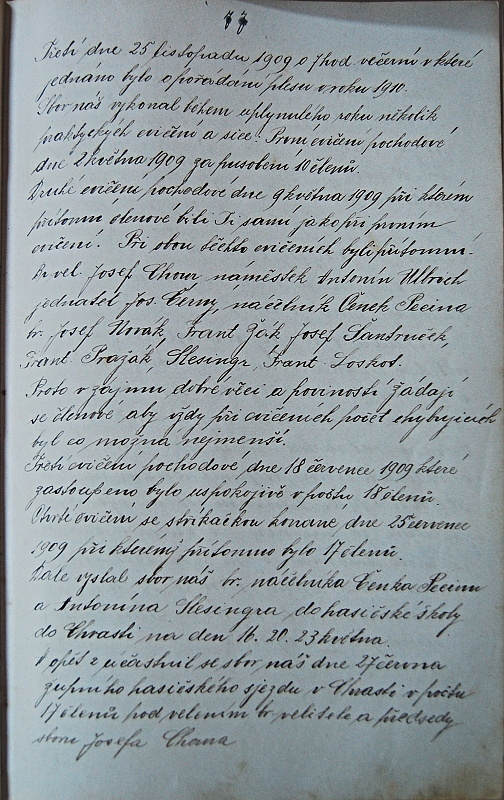 77
Třetí dne 25 listopadu 1909 o 7 hod. večerní v které
jednáno bylo o pořádání plesu v roku 1910.
Sbor náš vykonal během uplynulého roku několik
praktyckých cvičení a sice: První cvičení pochodové
dne 2 května 1909 za pusobení 10 členů.
Druhé cvičení pochodové dne 9 května 1909 při kterém
přítomni členové bili Ti samí jako při prvním
cvičení. Při obou těchto cvičeních byli přítomni.
Br vel. Josef Choura náměstek Antonín Ullrich
jednatel Jos. Černy, náčelník Čeněk Pecina
br. Josef Novák, Frant Žák Josef Šandrnček,
Frant. Pražák, Slesingr, Frant. Loskot.
Proto v zájmu dobré věci a poviností žádají
se členové aby vždy při cvičeních počet chybujících
byl co možna nejmenší.
Třetí cvičení pochodové dne 18 července 1909 které
zastoupeno bylo uspokojivě v počtu 18 členů.
Čtvrté cvičení se stříkačkou konané, dne 25 července
1909 při kterémž přítomno bylo 17 členů.
Dále vyslal sbor náš br. náčelníka Čenka Pecinu
a Antonína Slesingra do hasičské školy
do Chrasti na den 16. 20. 23 května.
V opět zúčastnil se sbor náš dne 27 června
župního hasičského sjezdu v Chrasti v počtu
17 členů pod velením br. velitele a předsedy
sboru Josefa Choura